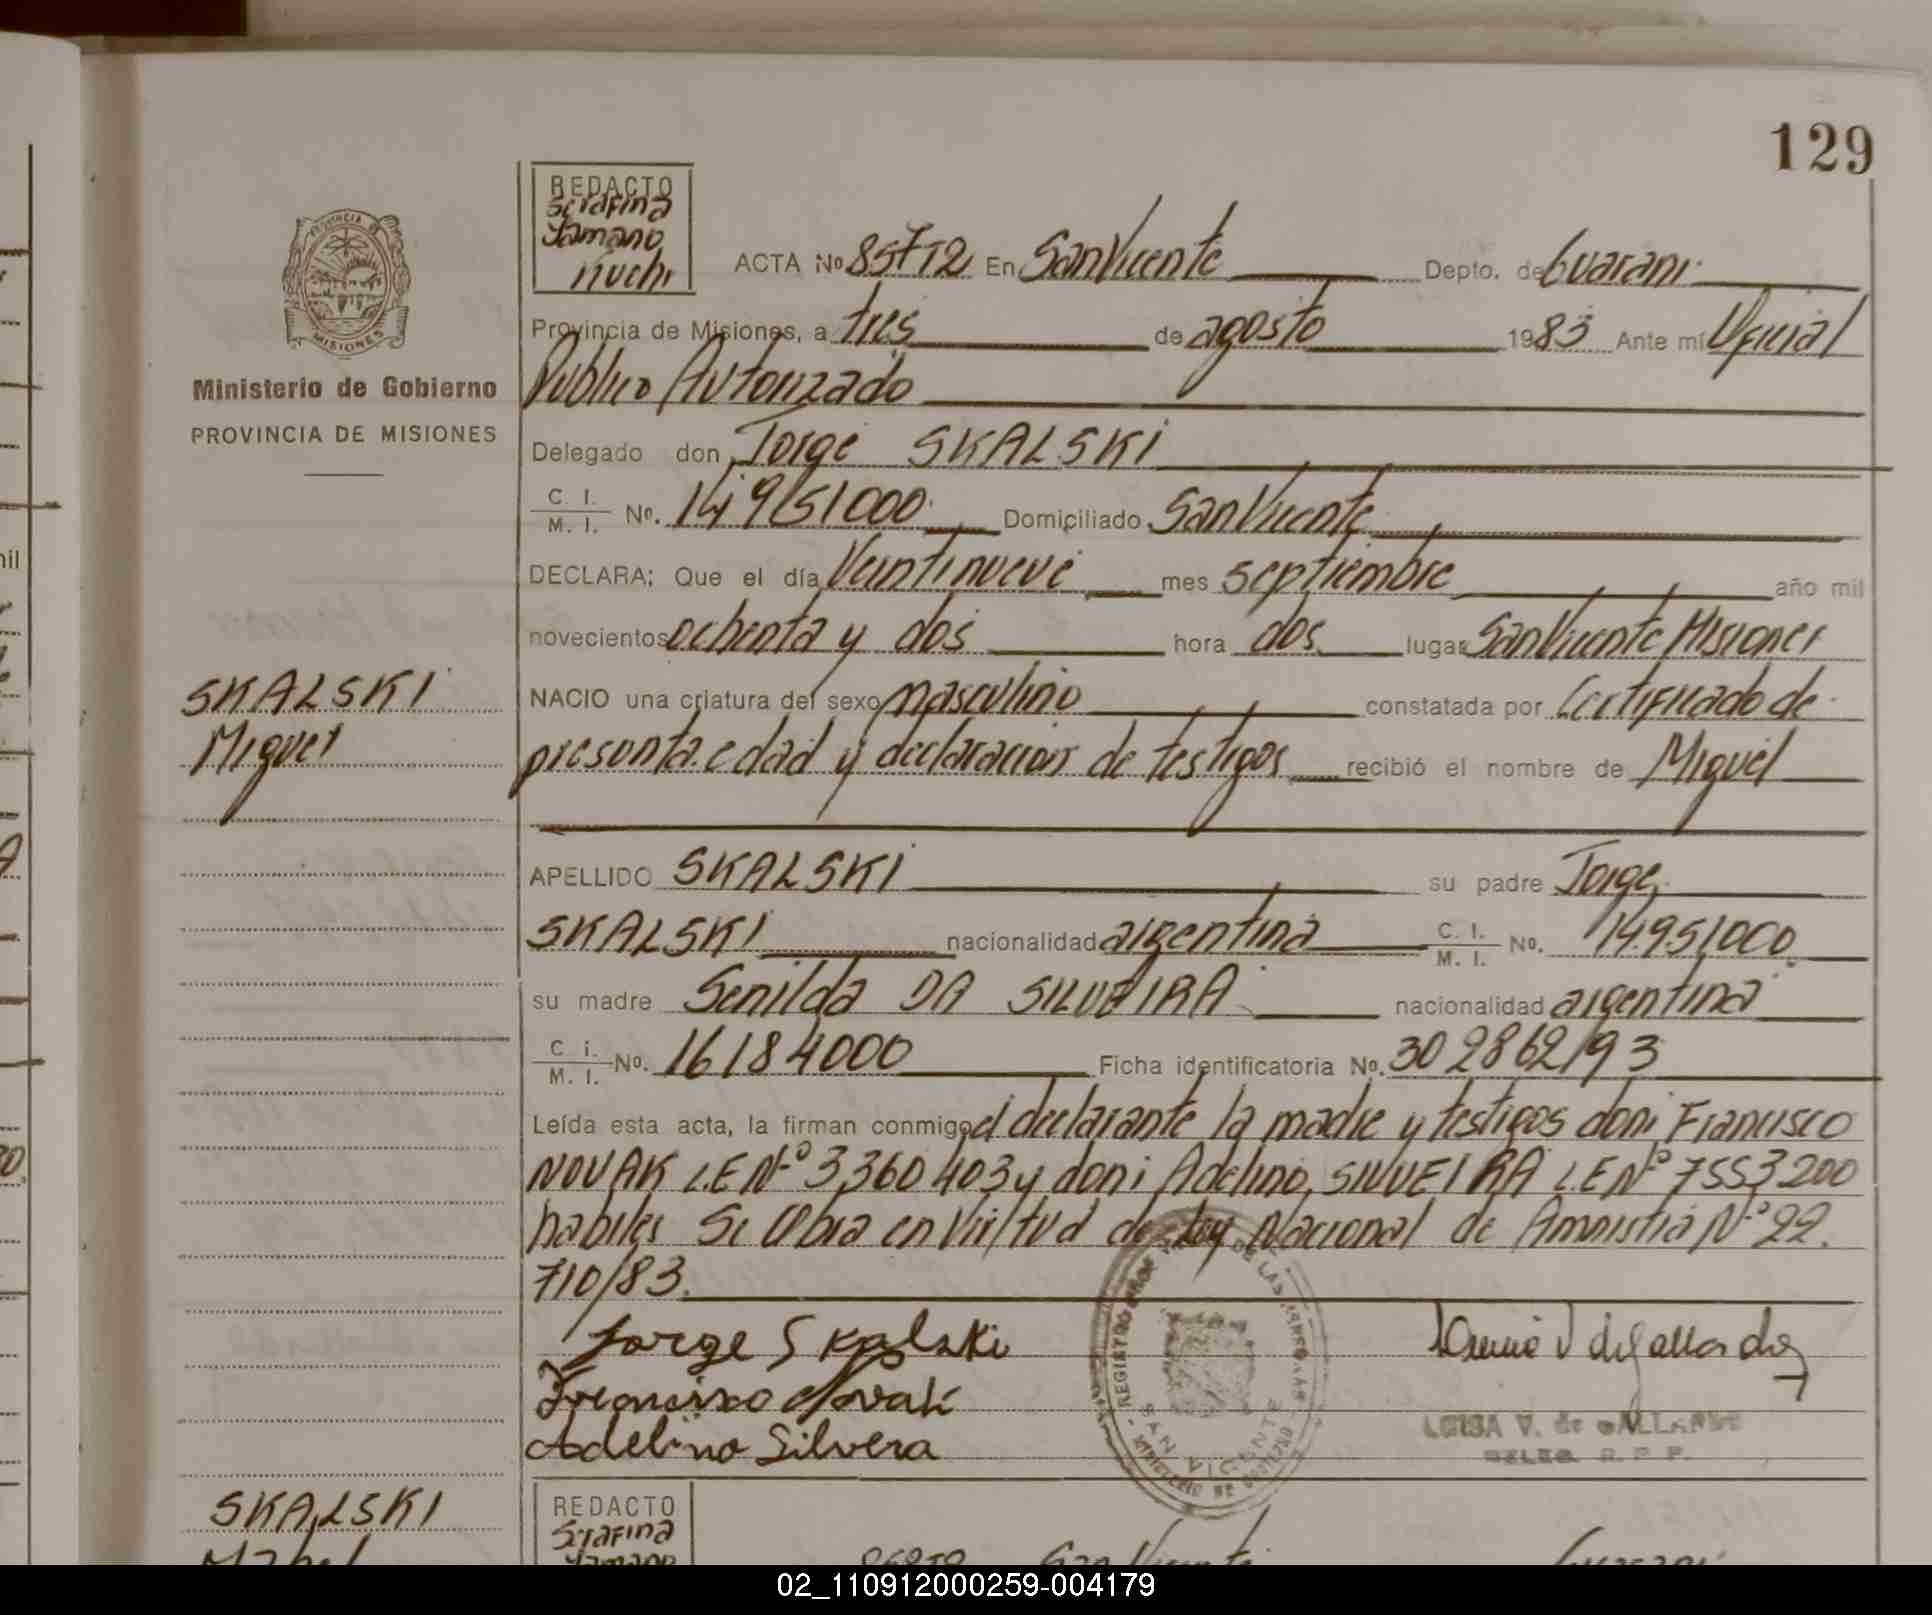 129
REDACTO
Serafina
Yamano
Kuchi
ACTA No 857T2 En San Vicente Depto. de Guarani
Provincia de Misiones, a tres de agosto 1983 Ante mí Oficial
Publico Autorizado
PROVINCIA
MISIONES
Ministerio de Gobierno
PROVINCIA DE MISIONES
Delegado don Jorge SKALSKI
C. I.
M. I. No. 14951000 Domiciliado San Vicente
DECLARA: Que el día Veintinueve mes septiembre año mil
novecientos ochenta y dos hora dos lugar San Vicente Misiones
SKALSKI
Miguel
NACIO una criatura del sexo masculino constatada por Certificado de
presunta edad y declaracion de testigos recibió el nombre de Miguel
APELLIDO SKALSKI su padre Jorge
SKALSKI nacionalidad argentina C. I. M. I. No. 14951000
su madre Senilda DA SILVEIRA nacionalidad argentina
C i. M. I. No. 16184000 Ficha identificatoria No. 302862/93
Leída esta acta, la firman conmigo el declarante la madre y testigos don: Francisco
NOVAK L.E Nº 3360403 y don: Adelino SILVEIRA L.E Nº 7553200
habiles Se Obra en Virtud de Ley Nacional de Amnistia Nº 22.
710/83.
Jorge Skalski
Francisco Novak
Adelino Silvera
REGISTRO DE LAS PERSONAS
SAN VICENTE
MINISTERIO DE GOBIERNO
LUISA V. de GALLARDO
DELEG. R. P. P.
SKALSKI
REDACTO
Serafina
Yamano
San Vicente
02_110912000259-004179